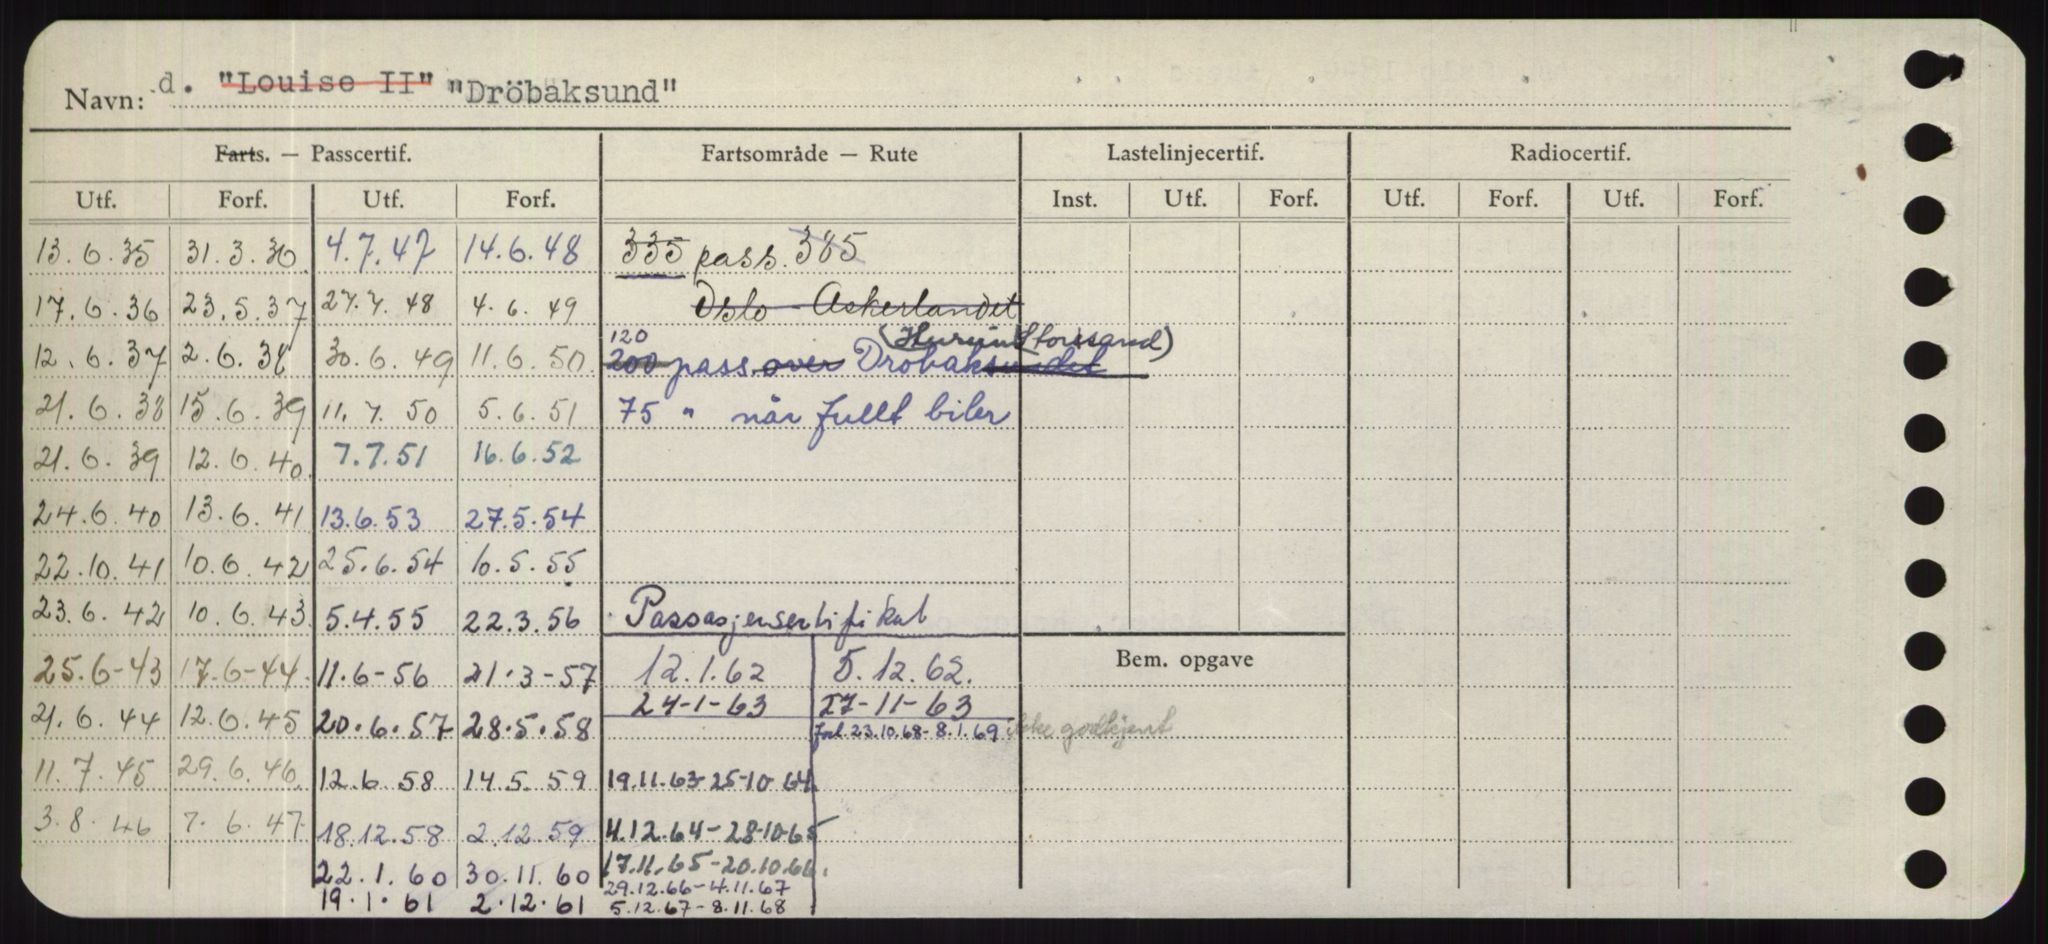 Navn: d. "Louise II" "Dröbaksund"
Farts. — Passcertif. Fartsområde — Rute Lastelinjecertif. Radiocertif.
Utf. Forf. Utf. Forf. Inst. Utf. Forf. Utf. Forf. Utf. Forf.
13.6.35 31.3.36 4.7.47 14.6.48 335 pass. 385
17.6.36 23.5.37 27.7.48 4.6.49 Oslo - Askerlandet
120 (Hurum Storsand)
12.6.37 2.6.38 30.6.49 11.6.50 200 pass over Drøbaksundet
21.6.38 15.6.39 11.7.50 5.6.51 75 " når fullt biler
21.6.39 12.6.40 7.7.51 16.6.52
24.6.40 13.6.41 13.6.53 27.5.54
22.10.41 10.6.42 25.6.54 10.5.55
23.6.42 10.6.43 5.4.55 22.3.56 Passasjersertifikat
Bem. opgave
25.6-43 17.6-44 11.6-56 21.3-57 12.1.62 5.12.62.
24-1-63 27-11-63
21.6.44 12.6.45 20.6.57 28.5.58 forl. 23.10.68-8.1.69 ikke godkjent
11.7.45 29.6.46 12.6.58 14.5.59 19.11.63-25-10-64
3.8.46 7.6.47 18.12.58 2.12.59 4.12.64-28-10-65
22.1.60 30.11.60 17.11.65-20.10.66.
29.12.66-4.11.67
19.1.61 2.12.61 5.12.67-8.11.68